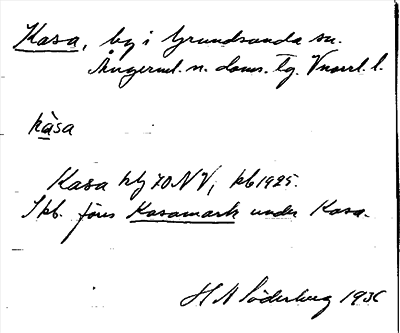 Kasa, by i Grundsunda sn.
Ångerml. n. doms. tg. Vnorrl. l.
kàsa
Kasa kbl 70 NV, kb 1925.
I kb. föres Kasamark under Kasa.
H A Söderberg 1936